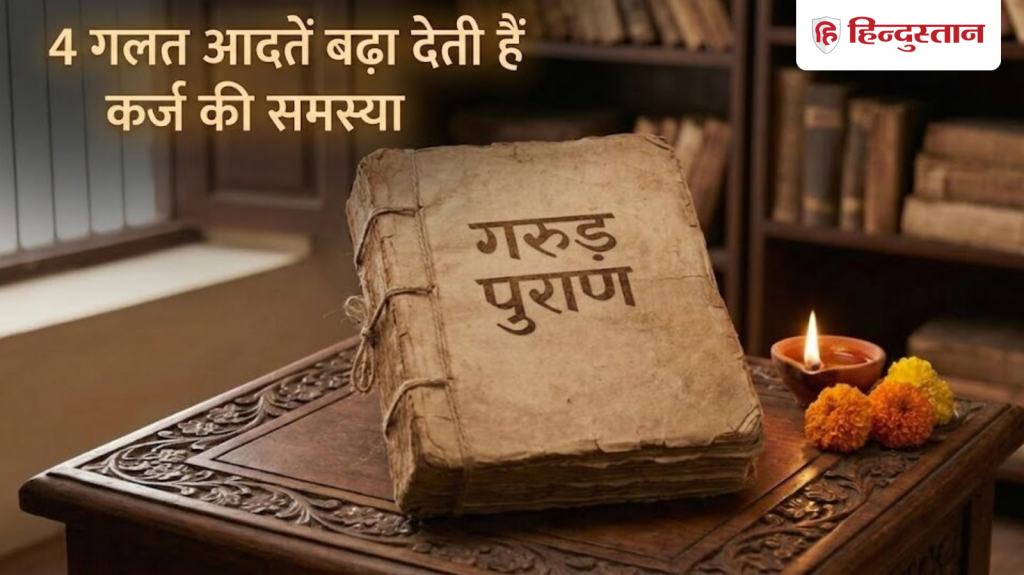 4 गलत आदतें बढ़ा देती हैं
कर्ज की समस्या
हि हिन्दुस्तान
गरुड़
पुराण